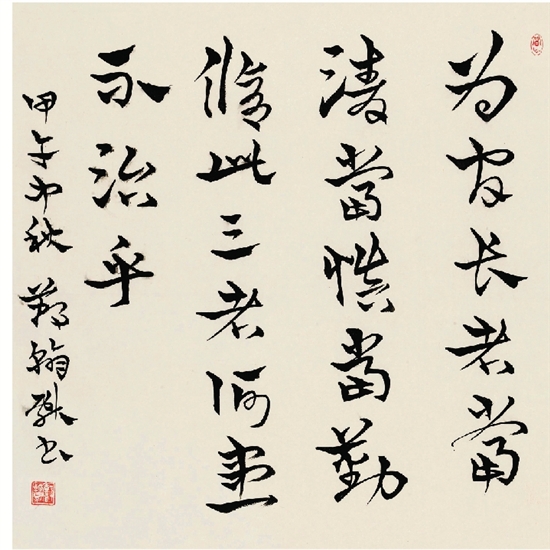 为官长者當
清當慎當勤
修此三者何患
不治乎
甲午中秋 翰 书